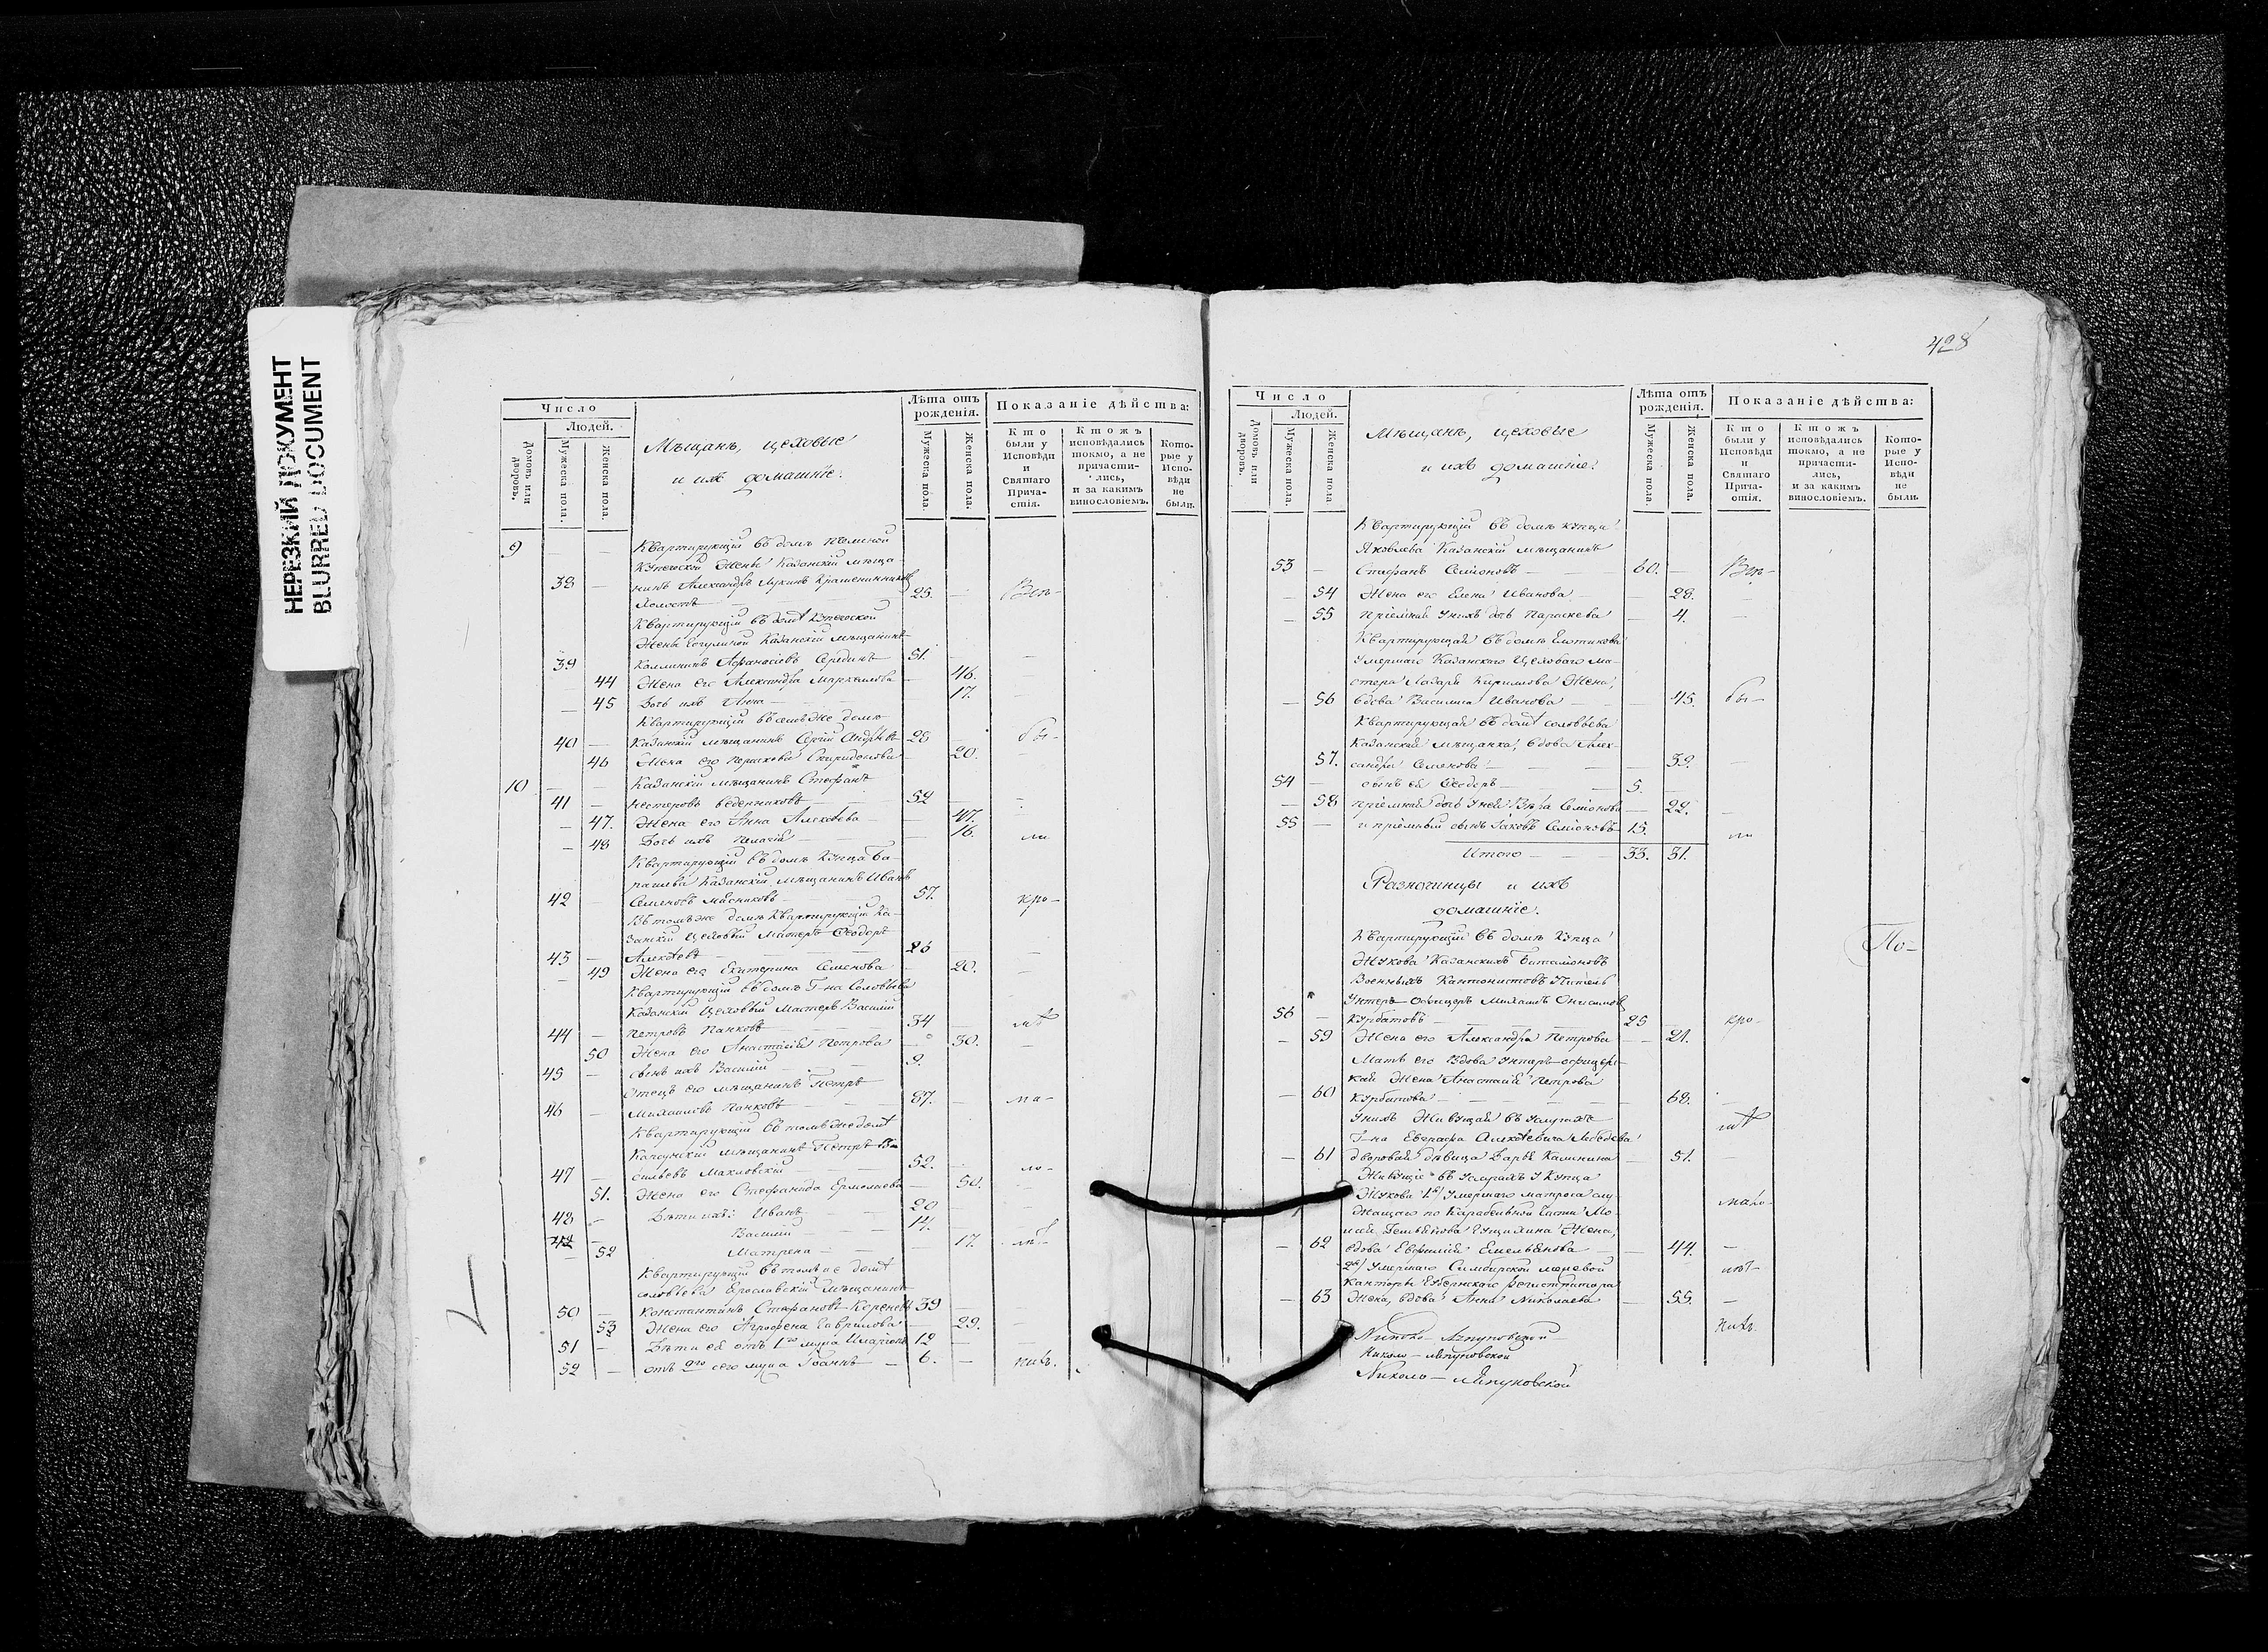 НЕРЕЗКИЙ ДОКУМЕНТ
BLURRED DOCUMENT
Число
Людей.
Домовъ или дворовъ.
Мужеска пола.
Женска пола.
Мѣщанъ, цеховые
и ихъ домашніе.
Лѣта отъ рожденія.
Мужеска пола.
Женска пола.
Показаніе дѣйства:
Кто были у Исповѣди и Святаго Причастія.
Ктожъ исповѣдались токмо, а не причастились, и за какимъ винословіемъ.
Которые у Исповѣди не были.
9 — — Квартирующій въ домѣ
Купеческой Жены Казанскій мѣща-
38 — нинъ Александръ Лукинъ Крашенинниковъ
Холостъ — 25. —
Квартирующій въ домѣ Купеческой
Жены Казанскій мѣщанинъ
39 Калининъ Афанасіевъ 51. —
44 Жена его Александра Маркелова 46. —
— 45 Дочь ихъ Анна — 17. —
Квартирующій въ семъ же домѣ
40 — Казанскій мѣщанинъ Сергій Андрѣевъ 28 — бы-
46 Жена его Параскова Спиридонова — 20. —
10 — — Казанскій мѣщанинъ Стефанъ
41 — Нестеровъ 52 —
— 47. Жена его Анна Алексѣева — 47. —
— 48 Дочь ихъ Пелагія — 16. ли
Квартирующій въ домѣ Купца Ба-
Казанскій мѣщанинъ Иванъ
42 — Семеновъ Масниковъ — 57. кро-
Въ томъ же домѣ Квартирующій Ка-
занскій Цеховый Мастеръ Ѳеодоръ
43 — Алексѣевъ — 26 —
— 49 Жена его Екатерина Семенова — 20. —
Квартирующій въ домѣ Г-на Соловьева
Казанскій Цеховый Мастеръ Василій
44 — Петровъ Панковъ — 34 — мѣ
50 Жена его Анастасія Петрова — 30. —
45 — сынъ ихъ Василій — 9.
Отецъ его мѣщанинъ Петръ
46 — Михаиловъ Панковъ — 87. — ма-
Квартирующій въ томъ же домѣ
мѣщанинъ Петръ Ва-
47 — сильевъ Маковскій 52. — ло-
51. Жена его Стефанида Ермолаева — 50. —
48 — Дѣти ихъ: Иванъ — 20 —
Василій — 14. —
— 52 Матрена — 17.
Квартирующій въ томъ же домѣ
Соловьева Ярославскій мѣщанинъ
50 — Константинъ Стефановъ 39 —
53 Жена его Агрофена Гаврилова — 29. —
51 — Дѣти ея отъ 1го мужа Иларіонъ 12 —
52 — отъ 2го сего мужа Іоаннъ — 6. —
428
Число
Людей.
Домовъ или дворовъ.
Мужеска пола.
Женска пола.
Мѣщанъ, цеховые
и ихъ домашніе.
Лѣта отъ рожденія.
Мужеска пола
Женска пола.
Показаніе дѣйства:
Кто были у Исповѣди и Святаго Причастія.
Ктожъ исповѣдались токмо, а не причастились, и за какимъ винословіемъ.
Которые у Исповѣди не были.
Квартирующій въ домѣ купца
Яковлева Казанскій мѣщанинъ
53 — Стефанъ Семіоновъ — 60. —
— 54 Жена его Елена Иванова — 28. —
— 55 Пріемная у нихъ дочь Параскева — 4. —
Квартирующая въ домѣ
Умершаго Казанскаго Цеховаго ма-
стера Лазаря Кирилова Жена,
— 56 вдова Василиса Иванова — 45. бы-
Квартирующая въ домѣ Соловьева
Казанская мѣщанка, вдова Алек-
57. сандра Семенова — 39. —
54 — сынъ ея Ѳеодоръ — 5. —
— 58 пріемная дочь у ней Вѣра Семіонова — 22. —
55 — и пріемный сынъ Іаковъ Семіоновъ 15. ли
Итого — 33. 31.
Разночинцы и ихъ
домашніе.
Квартирующій въ домѣ Купца
Жукова Казанскихъ Баталіоновъ
Военныхъ Кантонистовъ Учитель
Унтеръ-Офицеръ Михаилъ Онисимовъ
56 — Курбатовъ — 25 кро-
— 59 Жена его Александра Петрова — 21. —
Мать его Вдова Унтеръ-офицер-
кая Жена Анастасія Петрова
— 60 Курбатова — 68. —
У нихъ Живущая въ услугахъ
Г-на Евграфа Алексѣевича Лебедева
— 61 дворовая дѣвица Дарья Калинина — 51. —
Живущіе въ услугахъ у Купца
Жукова 1я) Умершаго матроса слу-
жащаго по Карабельной части
Жена,
— 62 вдова Евфимія Емельянова — 44. —
2я) Умершаго Симбирской
Канторы Губернскаго регистратора
— 63 Жена, вдова Анна Николаева — 55. —
По-